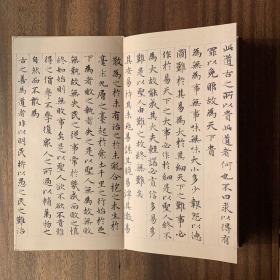 此道者古之所以貴此道者何也不曰求以得有
罪以免耶故為天下貴
為無為事無事味無味大小多少報怨以德
圖難於其易為大於其細天下之難事必
作於易天下之大事必作於細是以聖人終不
為大故能成其大夫輕諾必寡信多易多
難是以聖人猶難之故終無難
其安易持其未兆易謀其脆易破其微易
散為之於未有治之於未亂合抱之木生於
毫末九層之臺起於累土千里之行始於足
下為者敗之執者失之是以聖人無為故無敗
無執故無失民之從事常於幾成而敗之慎
終如始則無敗事矣是以聖人欲不欲不貴難
得之貨學不學復眾人之所過以輔萬物之
自然而不敢為
古之善為道者非以明民將以愚之民之難治